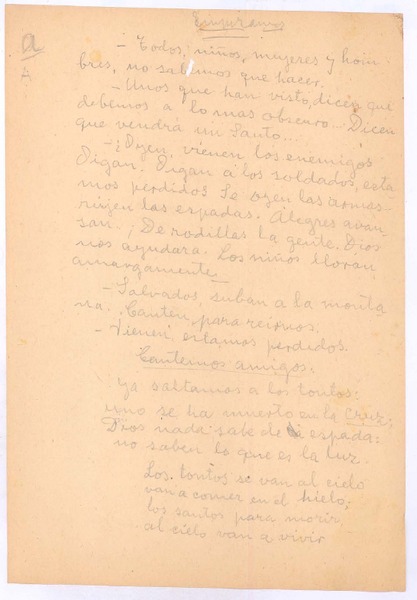 a
A
- Todos, niños, mujeres y hom
bres, no sabemos que hacer.
- Unos que han visto, dicen que
debemos a lo mas obscuro... Dicen
que vendrá un Santo...
- ¿Oyen, vienen los enemigos
Oigan. Oigan a los soldados, esta
mos perdidos Se oyen las armas
rujen las espadas. Alegres avan
san. ¡De rodillas la gente. Dios
nos ayudara. Los niños lloran,
amargamente
- Salvados, suban a la monta
ña. Canten, para reirnos.
- Vienen, estamos perdidos.
Cantemos amigos.
Ya saltamos a los tontos:
uno se ha muerto en la Cruz;
Dios nada sabe de la espada:
no saben lo que es la luz.
Los tontos se van al cielo
van a comer en el hielo;
los santos para morir
al cielo van a vivir